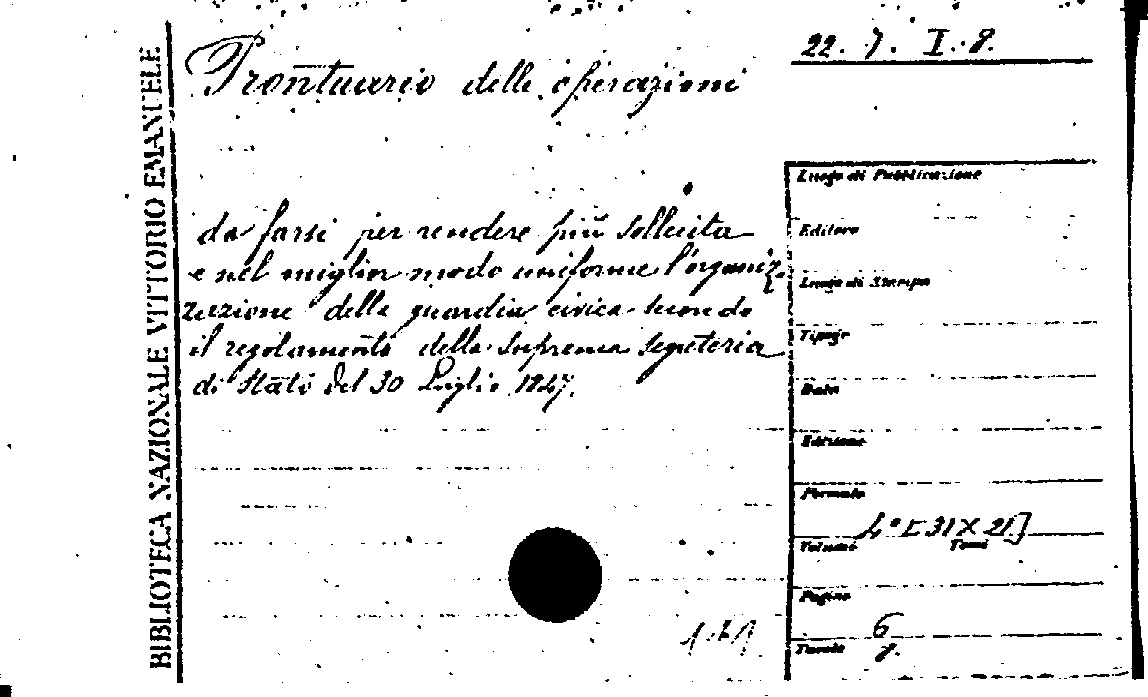 BIBLIOTECA NAZIONALE VITTORIO EMANUELE
22. 7. I. 8.
Prontuario delle operazioni
da farsi per rendere più sollecita
e nel miglior modo uniforme l'organiz-
zazione della guardia civica secondo
il regolamento della Suprema Segreteria
di Stato del 30 Luglio 1847.
Luogo di Pubblicazione
Editore
Luogo di Stampa
Tipogr.
Data
Edizione
Formato
4° [31 X 21]
Volumi Tomi
Pagine
6
Tavole